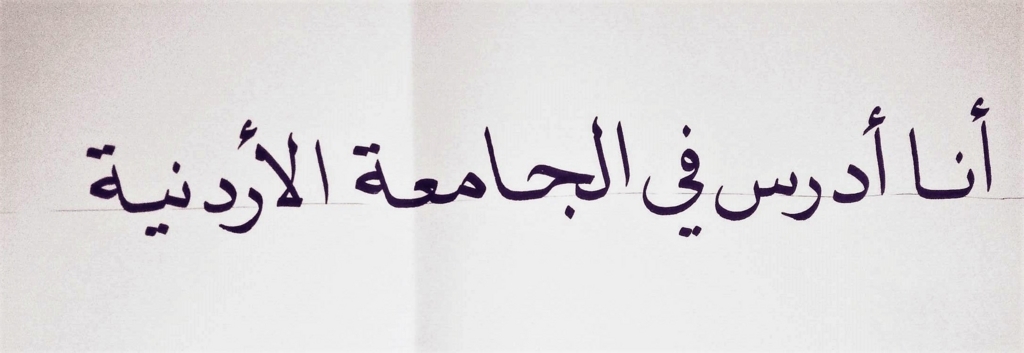 أنا أدرس في الجامعة الأردنية